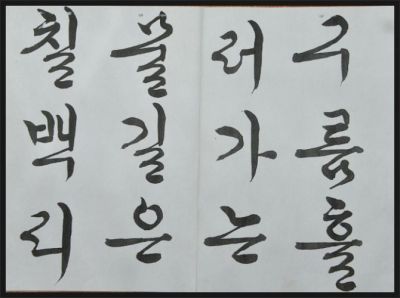 구름흘
러가는
물길은
칠백리